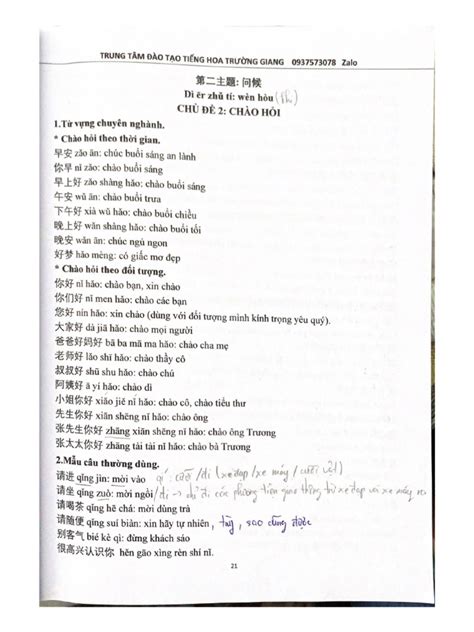 TRUNG TÂM ĐÀO TẠO TIẾNG HOA TRƯỜNG GIANG 0937573078 Zalo
第二主题: 问候
Dì èr zhǔ tí: wèn hòu
CHỦ ĐỀ 2: CHÀO HỎI
1.Từ vựng chuyên nghành.
* Chào hỏi theo thời gian.
早安 zǎo ān: chúc buổi sáng an lành
你早 nǐ zǎo: chào buổi sáng
早上好 zǎo shàng hǎo: chào buổi sáng
午安 wǔ ān: chào buổi trưa
下午好 xià wǔ hǎo: chào buổi chiều
晚上好 wǎn shàng hǎo: chào buổi tối
晚安 wǎn ān: chúc ngủ ngon
好梦 hǎo mèng: có giấc mơ đẹp
* Chào hỏi theo đối tượng.
你好 nǐ hǎo: chào bạn, xin chào
你们好 nǐ men hǎo: chào các bạn
您好 nín hǎo: xin chào (dùng với đối tượng mình kính trọng yêu quý).
大家好 dà jiā hǎo: chào mọi người
爸爸好妈好 bā ba mā ma hǎo: chào cha mẹ
老师好 lǎo shī hǎo: chào thầy cô
叔叔好 shū shu hǎo: chào chú
阿姨好 ā yí hǎo: chào dì
小姐你好 xiǎo jiě nǐ hǎo: chào cô, chào tiểu thư
先生你好 xiān shēng nǐ hǎo: chào ông
张先生你好 zhāng xiān shēng nǐ hǎo: chào ông Trương
张太太你好 zhāng tài tài nǐ hǎo: chào bà Trương
2.Mẫu câu thường dùng.
请进 qǐng jìn: mời vào
请坐 qǐng zuò: mời ngồi
请喝茶 qǐng hē chá: mời dùng trà
请随便 qǐng suí biàn: xin hãy tự nhiên, tùy, sao cũng được
别客气 bié kè qì: đừng khách sáo
很高兴认识你 hěn gāo xìng rèn shí nǐ.
21